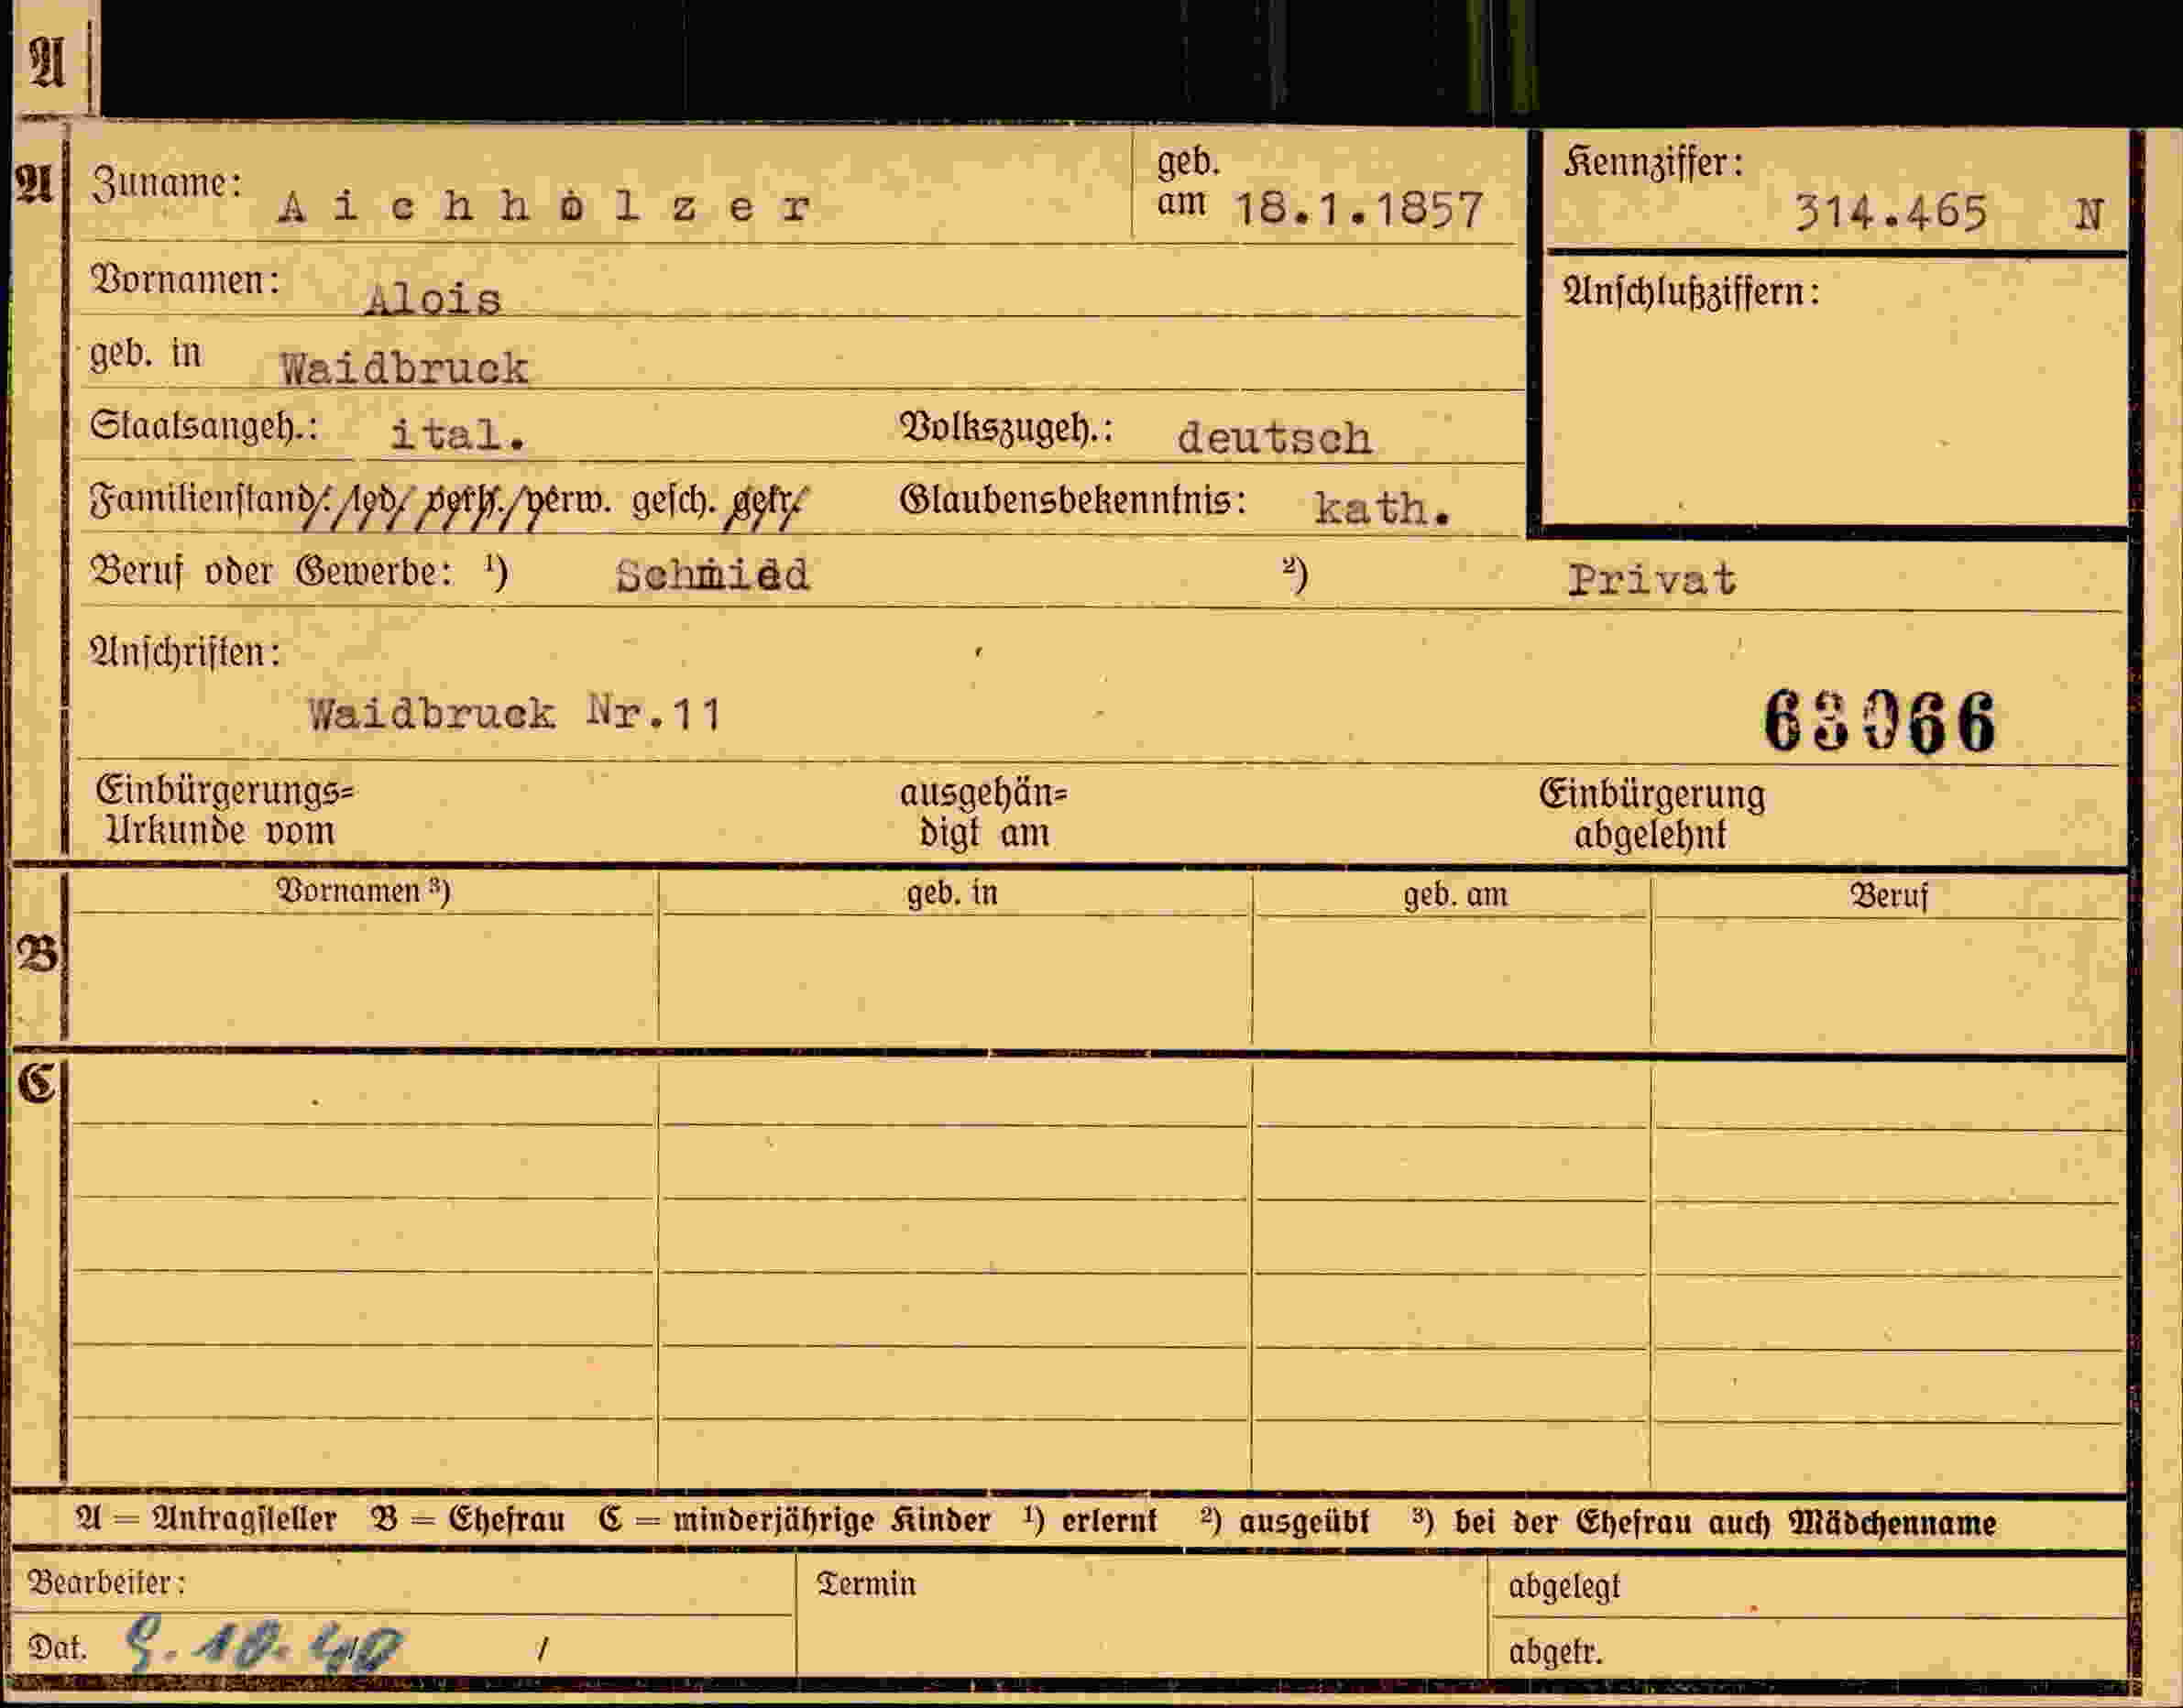 A
A
Zuname: Aichholzer
geb. am 18.1.1857
Kennziffer: 314.465 N
Vornamen: Alois
Anschlußziffern:
geb. in Waidbruck
Staatsangeh.: ital. Volkszugeh.: deutsch
Familienstand: led. verh. verw. gesch. getr. Glaubensbekenntnis: kath.
Beruf oder Gewerbe: ¹) Schmied ²) Privat
Anschriften:
Waidbruck Nr.11 63066
Einbürgerungs= ausgehän= Einbürgerung
Urkunde vom digt am abgelehnt
Vornamen ³) geb. in geb. am Beruf
B
C
A = Antragsteller B = Ehefrau C = minderjährige Kinder ¹) erlernt ²) ausgeübt ³) bei der Ehefrau auch Mädchenname
Bearbeiter: Termin abgelegt
Dat. 9.10.40 / abgetr.